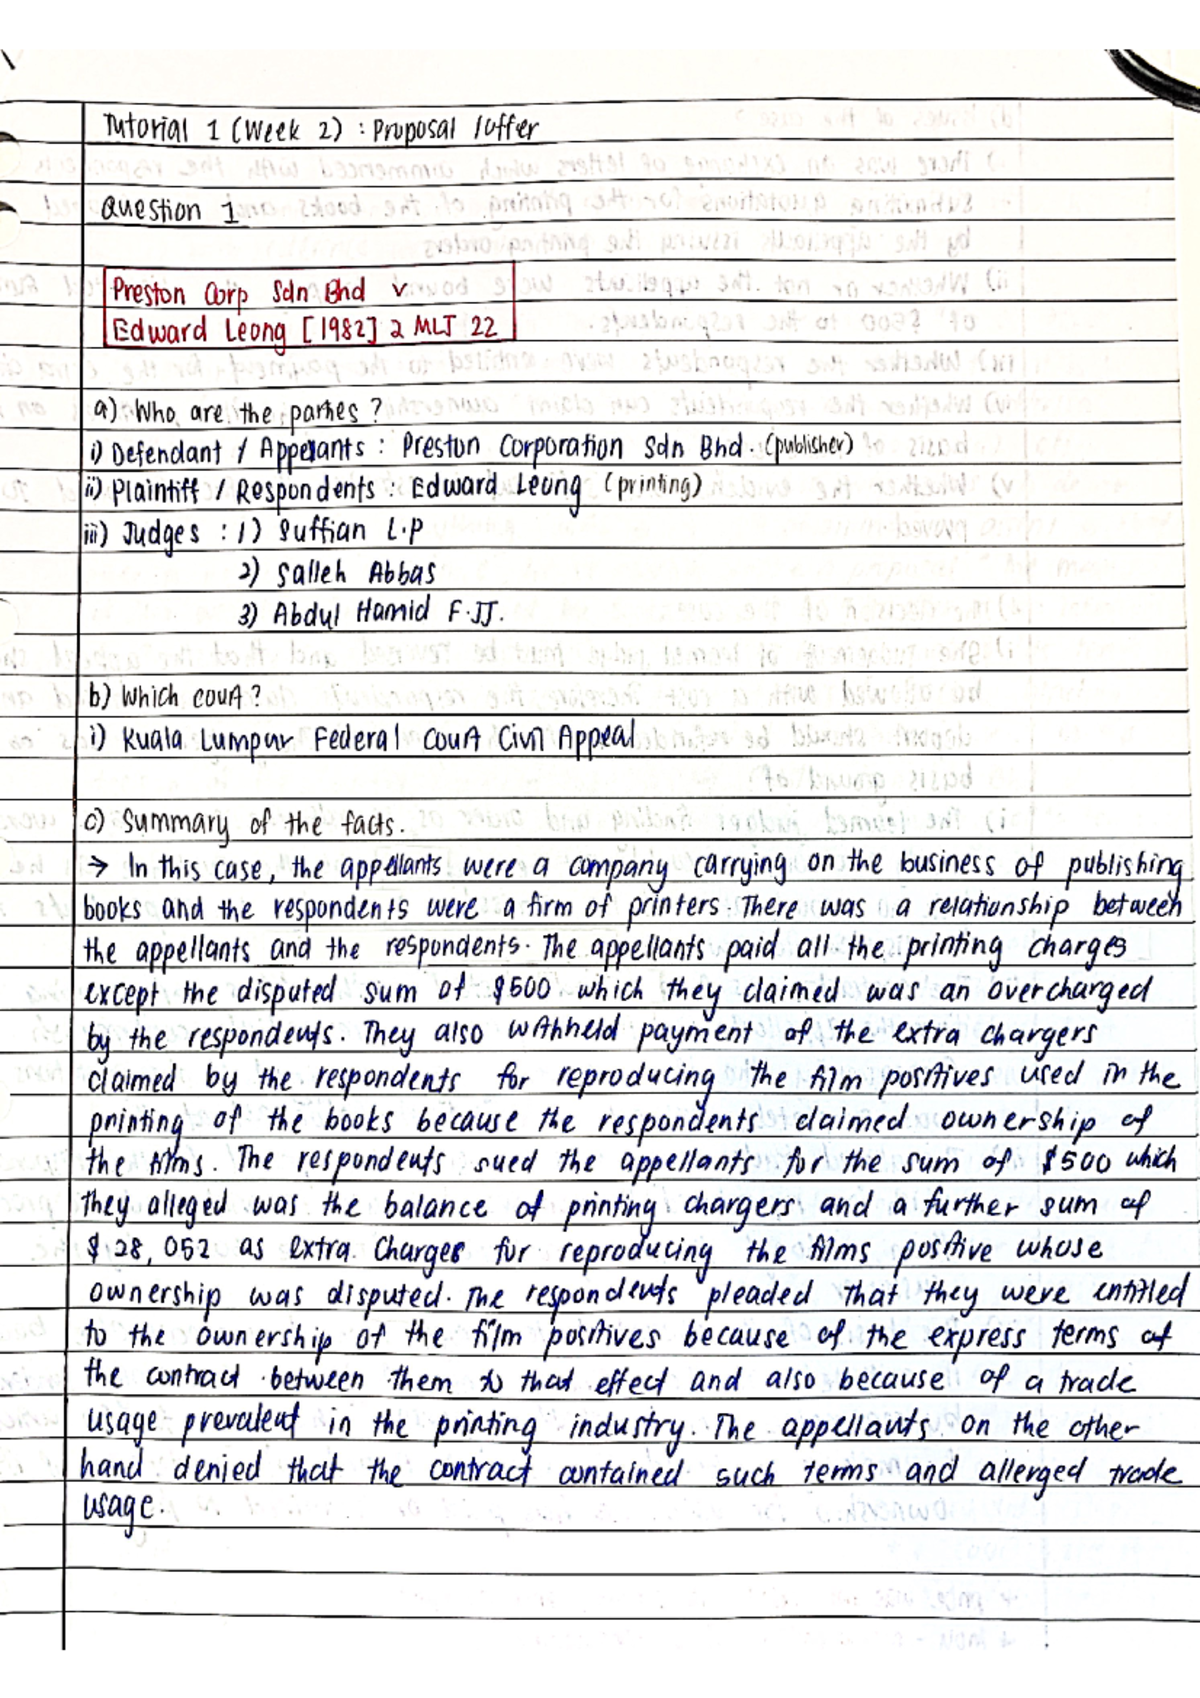 Tutorial 1 (Week 2) : Proposal / offer
Question 1
Preston Corp Sdn Bhd v
Edward Leong [1982] 2 MLJ 22
a) Who are the parties ?
i) Defendant / Appellants : Preston Corporation Sdn Bhd. (publisher)
ii) Plaintiff / Respondents : Edward Leong (printing)
iii) Judges : 1) Suffian L.P
2) Salleh Abbas
3) Abdul Hamid F.JJ.
b) Which court ?
i) Kuala Lumpur Federal Court Civil Appeal
c) Summary of the facts.
→ In this case, the appellants were a company carrying on the business of publishing
books and the respondents were a firm of printers. There was a relationship between
the appellants and the respondents. The appellants paid all the printing charges
except the disputed sum of $500 which they claimed was an overcharged
by the respondents. They also withheld payment of the extra chargers
claimed by the respondents for reproducing the film positives used in the
printing of the books because the respondents claimed ownership of
the films. The respondents sued the appellants for the sum of $500 which
they alleged was the balance of printing chargers and a further sum of
$ 28, 052 as extra. Charges for reproducing the films positive whose
ownership was disputed. The respondents pleaded that they were entitled
to the ownership of the film positives because of the express terms of
the contract between them to that effect and also because of a trade
usage prevalent in the printing industry. The appellants on the other
hand denied that the contract contained such terms and allerged trade
usage.